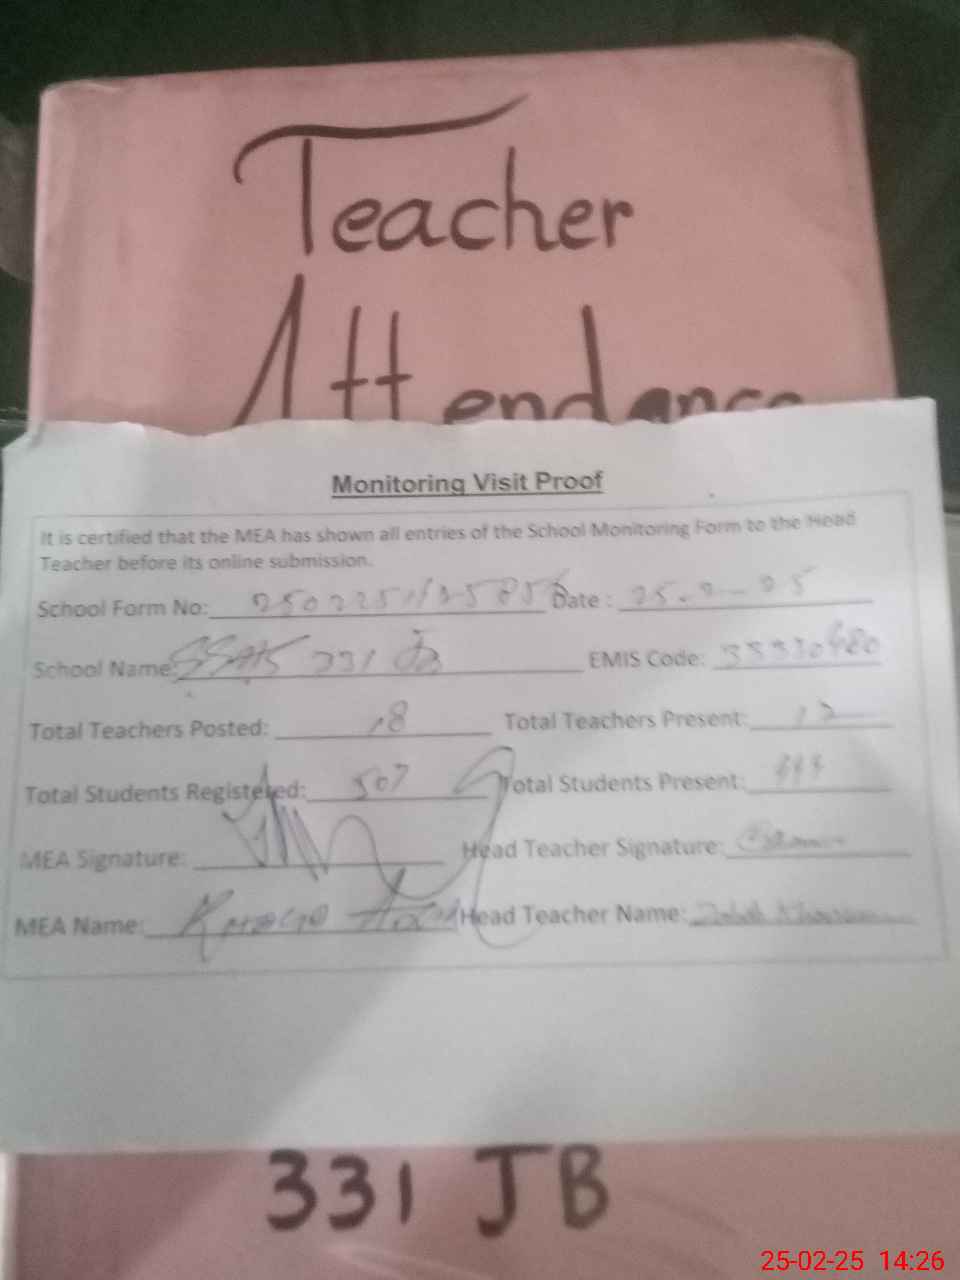 Teacher
Attendance
Monitoring Visit Proof
It is certified that the MEA has shown all entries of the School Monitoring Form to the Head
Teacher before its online submission.
School Form No: Date : 25-2-25
School Name: 331 JB EMIS Code: 33330480
Total Teachers Posted: 18 Total Teachers Present:
Total Students Registered: 507 Total Students Present:
MEA Signature: Head Teacher Signature:
MEA Name: Head Teacher Name:
331 JB
25-02-25 14:26